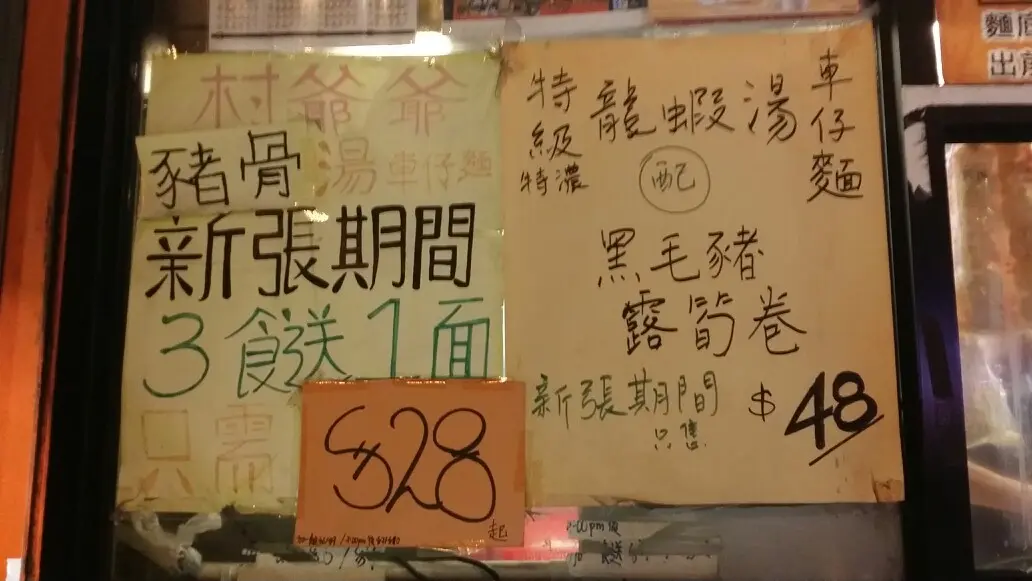 村爺爺
豬骨湯車仔麵
新張期間
3餸送1面
只需
$28
起
特級
特濃
龍蝦湯
車仔麵
配
黑毛豬
露筍卷
新張期間
只售
$48